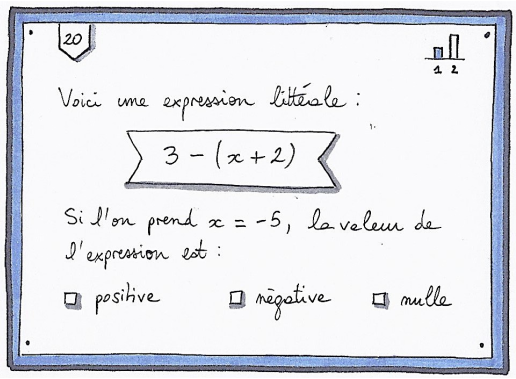 20
1 2
Voici une expression littérale :
3 - (x + 2)
Si l'on prend x = -5, la valeur de
l'expression est :
positive négative nulle